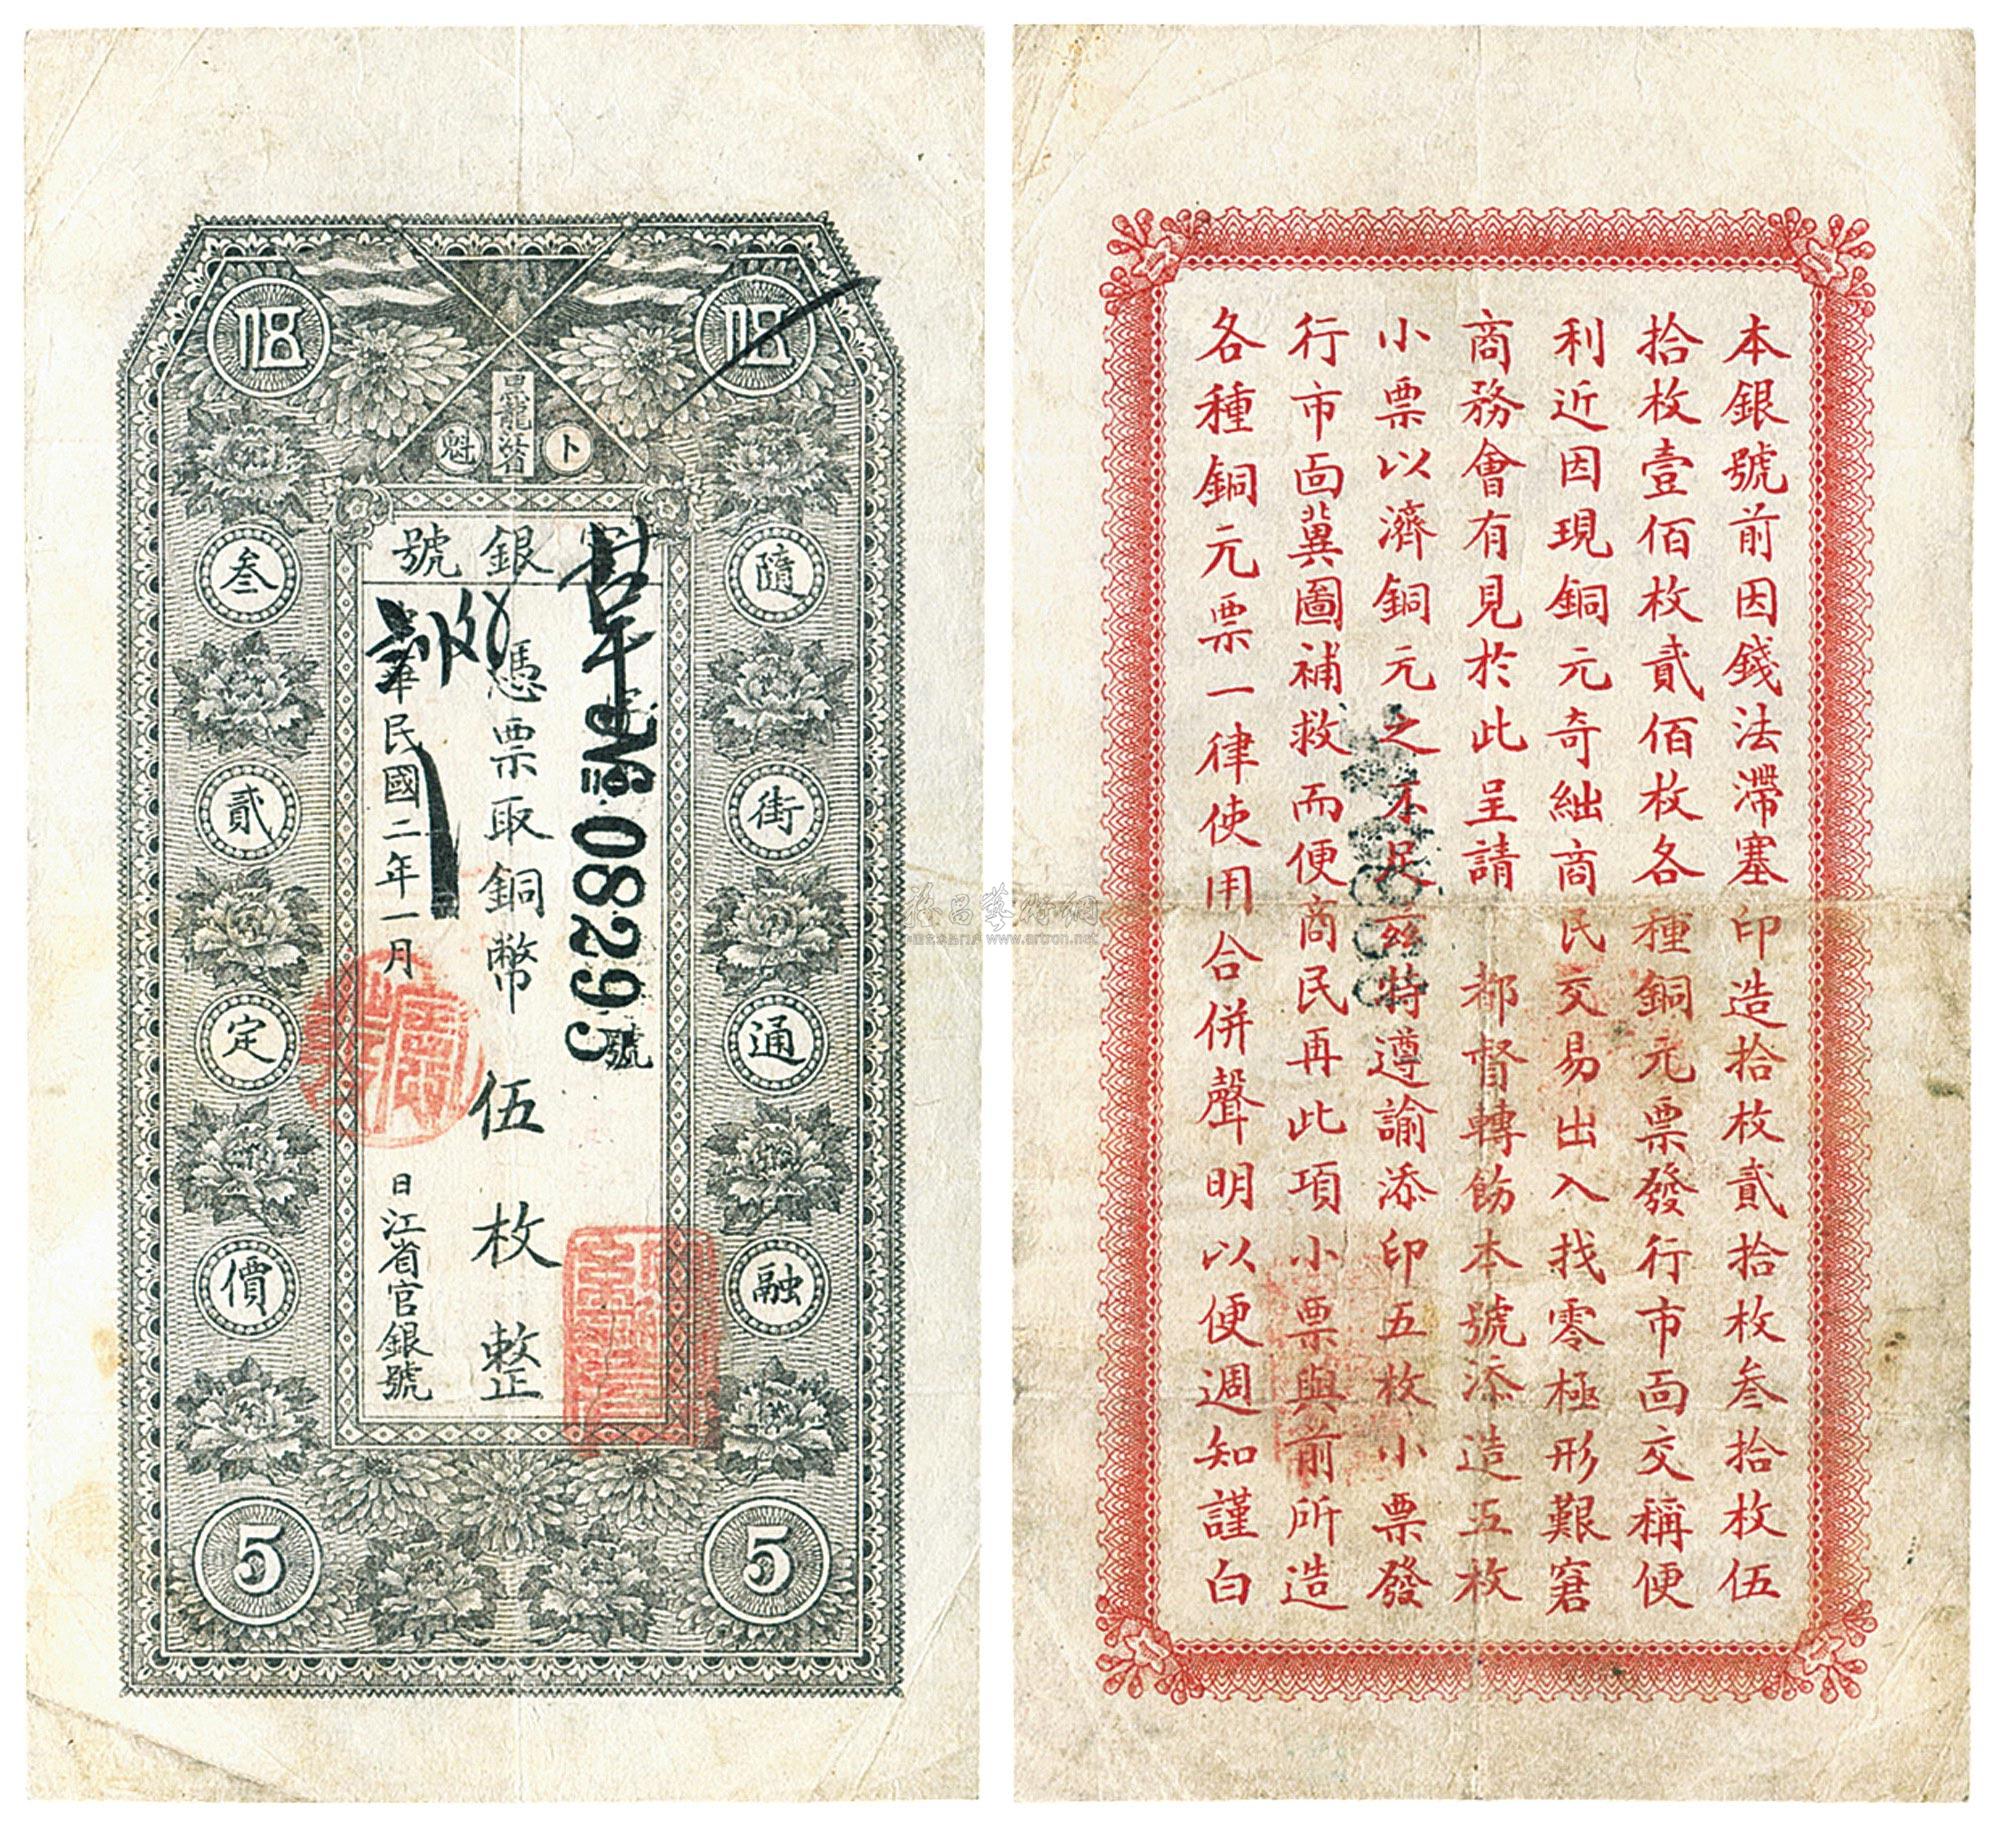 伍
伍
黑龍江省
卜
魁
官銀號
隨街通融
叁貳定價
№ 08295
號
憑票取銅幣伍枚整
中華民國二年一月
日江省官銀號
5
5
本銀號前因錢法滯塞印造拾枚貳拾枚叁拾枚伍
拾枚壹佰枚貳佰枚各種銅元票發行市面交稱便
利近因現銅元奇絀商民交易出入找零極形艱窘
商務會有見於此呈請 都督轉飭本號添造五枚
小票以濟銅元之不足茲特遵諭添印五枚小票發
行市面冀圖補救而便商民再此項小票與前所造
各種銅元票一律使用合併聲明以便週知謹白
www.artron.net